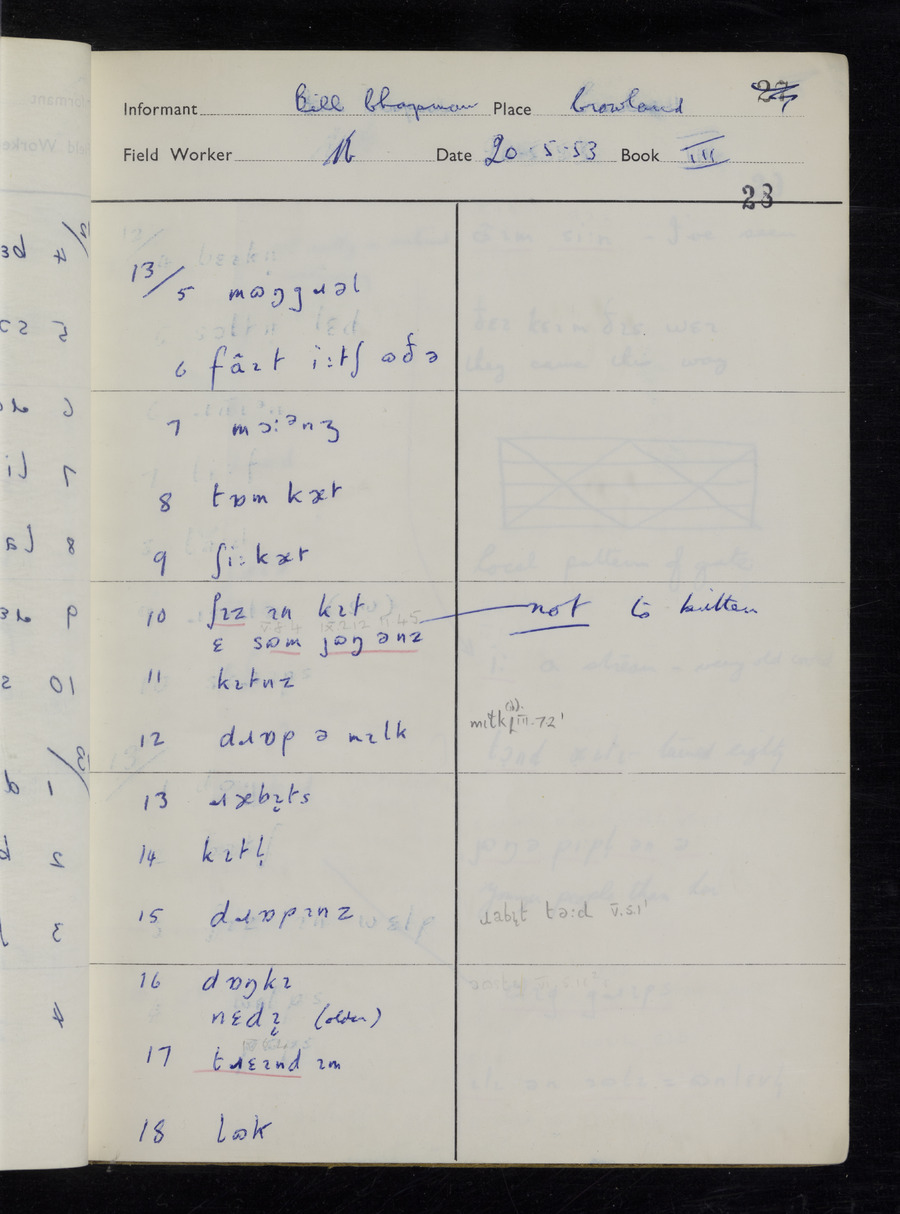 Informant Bill Chapman Place Crowland 27
Field Worker Date 20·5·53 Book III
23
13/5 mɷŋgɹəl
6 fâɪt iːtʃ ɷðə
7 mɔːᵊnʒ
8 tɒm kæt
9 ʃiːkæt
10 ʃɪz ɪn kɪt not to kitten
ɛ sɷm jɷŋ ənz
11 kɪtnz
12 dɹɒp ə mɪlk
13 ɹæbɪ̞ts
14 kɪtl̩
15 dɹɒpɪnz
ɹabɪ̞t V.S.1'
16 dɒŋkɪ
nɛdɪ̞ (older)
17 tɹɛɪnd ɪm
18 lɷk